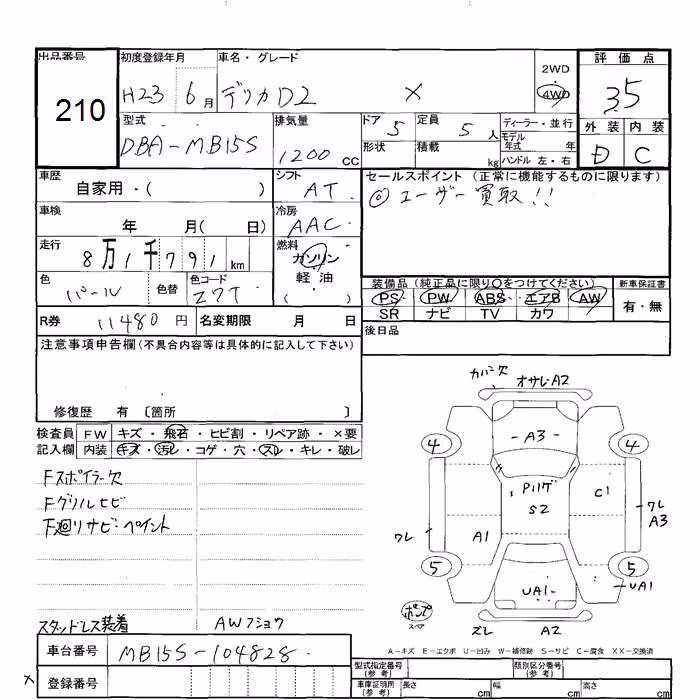 出品番号 210
初度登録年月 H23 6月
車名・グレード デリカD2 X
2WD 4WD
評価点 3.5
外装 D 内装 C
型式 DBA-MB15S
排気量 1200 cc
ドア 5 定員 5人
形状 積載 kg
ディーラー・並行
モデル年式 年
ハンドル 左・右
車歴 自家用・( )
シフト AT
セールスポイント (正常に機能するものに限ります)
◎ユーザー買取!!
車検 年 月( 日)
冷房 AAC
走行 8万1千791 km
燃料 ガソリン
軽油
( )
色 パール 色替 色コード Z7T
装備品 (純正品に限り○をつけてください) 新車保証書
PS PW ABS エアB AW 有・無
SR ナビ TV カワ
R券 11480円 名変期限 月 日
後日品
注意事項申告欄(不具合内容等は具体的に記入して下さい)
修復歴 有 〔箇所 〕
検査員 FW キズ・飛石・ヒビ割・リペア跡・×要
記入欄 内装 キズ・汚レ・コゲ・穴・スレ・キレ・破レ
カバー欠 オサレA2
4 A3 4
Fスポイラー欠
Fグリルヒビ
下廻リサビ・ペイント
S2 C1
ワレ A1 ワレ A3
5 UA1 5 UA1
ポンプ
スペア
ズレ A2
スタッドレス装着 AWフショク
A-キズ E-エクボ U-凹み W-補修跡 S-サビ C-腐食 XX-交換済
車台番号 MB15S-104828
型式指定番号(参考) 類別区分番号(参考)
X 登録番号
車庫証明用(参考) 長さ cm 幅 cm 高さ cm